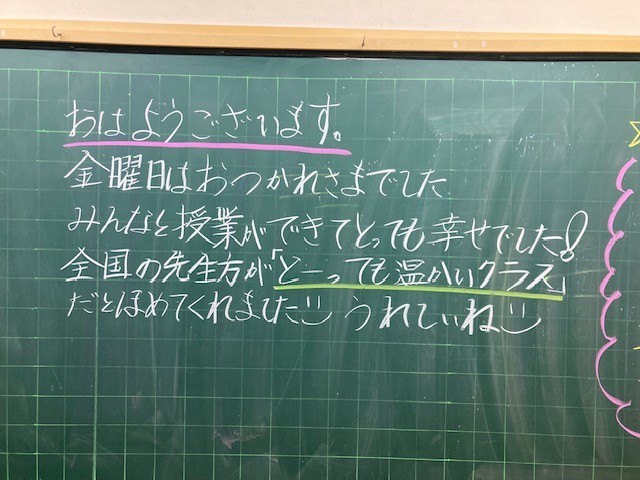 おはようございます。
金曜日はおつかれさまでした
みんなと授業ができてとっても幸せでした!
全国の先生方が「とーっても温かいクラス」
だとほめてくれました うれしいね